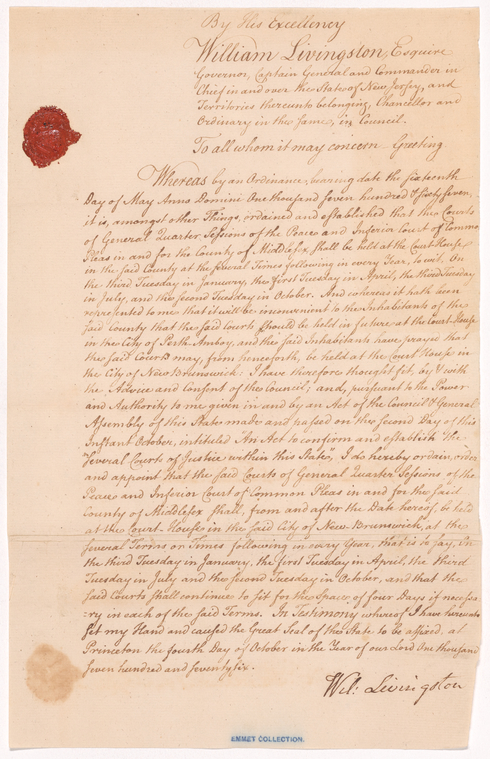 By His Excellency
William Livingston, Esquire
Governor, Captain General and Commander in
Chief in and over the State of New Jersey, and
Territories thereunto belonging, Chancellor and
Ordinary in the same, in Council.
To all whom it may concern Greeting
Whereas by an Ordinance, bearing date the sixteenth
Day of May Anno Domini One thousand seven hundred & sixty seven,
it is, amongst other Things, ordained and established that the Courts
of General Quarter Sessions of the Peace and Inferior Court of Common
Pleas in and for the County of Middlesex shall be held at the Court House
in the said County at the several Times following in every Year, to wit. On
the third Tuesday in January, the first Tuesday in April, the third Tuesday
in July, and the second Tuesday in October. And whereas it hath been
represented to me that it will be inconvenient to the Inhabitants of the
said County that the said Courts should be held in future at the Court-House
in the City of Perth Amboy, and the said Inhabitants have prayed that
the said Courts may, from henceforth, be held at the Court House in
the City of New Brunswick: I have therefore thought fit, by & with
the Advice and Consent of the Council; and, pursuant to the Power
and Authority to me given in and by an Act of the Council & General
Assembly of this State made and passed on the second Day of this
Instant October, intituled An Act to confirm and establish "the
"several Courts of Justice within this State", I do hereby ordain, order
and appoint that the said Courts of General Quarter Sessions of the
Peace and Inferior Court of Common Pleas in and for the said
County of Middlesex shall, from and after the Date hereof, be held
at the Court-House in the said City of New-Brunswick, at the
several Terms or Times following in every Year, that is to say, On
the third Tuesday in January, the first Tuesday in April, the third
Tuesday in July and the second Tuesday in October, and that the
said Courts shall continue to sit for the Space of four Days if necessa-
ry in each of the said Terms. In Testimony whereof I have hereunto
set my Hand and caused the Great Seal of the State to be affixed, at
Princeton the fourth Day of October in the Year of our Lord One thousand
seven hundred and seventy six.
Wil: Livingston
EMMET COLLECTION.